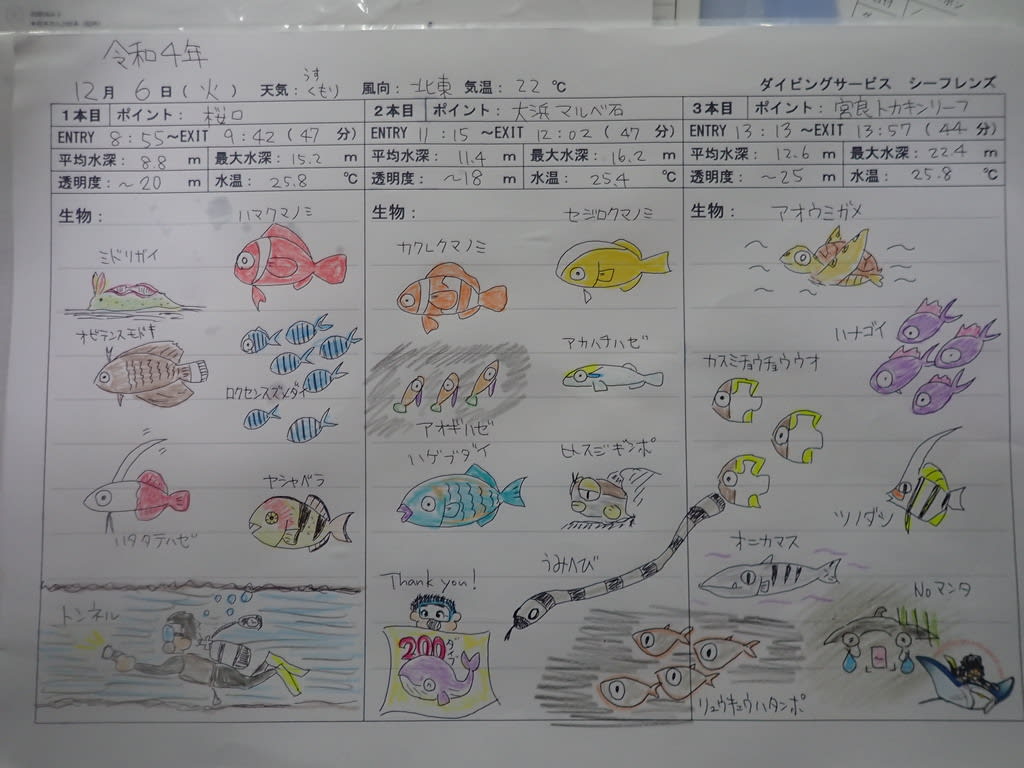 令和4年
12月 6日(火) 天気:うすくもり 風向:北東 気温:22℃ ダイビングサービス シーフレンズ
1本目 ポイント:桜口
ENTRY 8:55~EXIT 9:42(47分)
平均水深:8.8m 最大水深:15.2m
透明度:~20m 水温:25.8℃
生物:
ハマクマノミ
ミドリガイ
オビテンスモドキ
ロクセンスズメダイ
ヤシャベラ
ハタタテハゼ
トンネル
2本目 ポイント:大浜マルベ石
ENTRY 11:15~EXIT 12:02(47分)
平均水深:11.4m 最大水深:16.2m
透明度:~18m 水温:25.4℃
生物:
セジロクマノミ
カクレクマノミ
アカハチハゼ
アオギハゼ
ハゲブダイ
ヒトスジギンポ
うみへび
Thank you!
200ダイブ
リュウキュウハタンポ
3本目 ポイント:宮良トカキンリーフ
ENTRY 13:13~EXIT 13:57(44分)
平均水深:12.6m 最大水深:22.4m
透明度:~25m 水温:25.8℃
生物:
アオウミガメ
ハナゴイ
カスミチョウチョウウオ
ツノダシ
オニカマス
Noマンタ